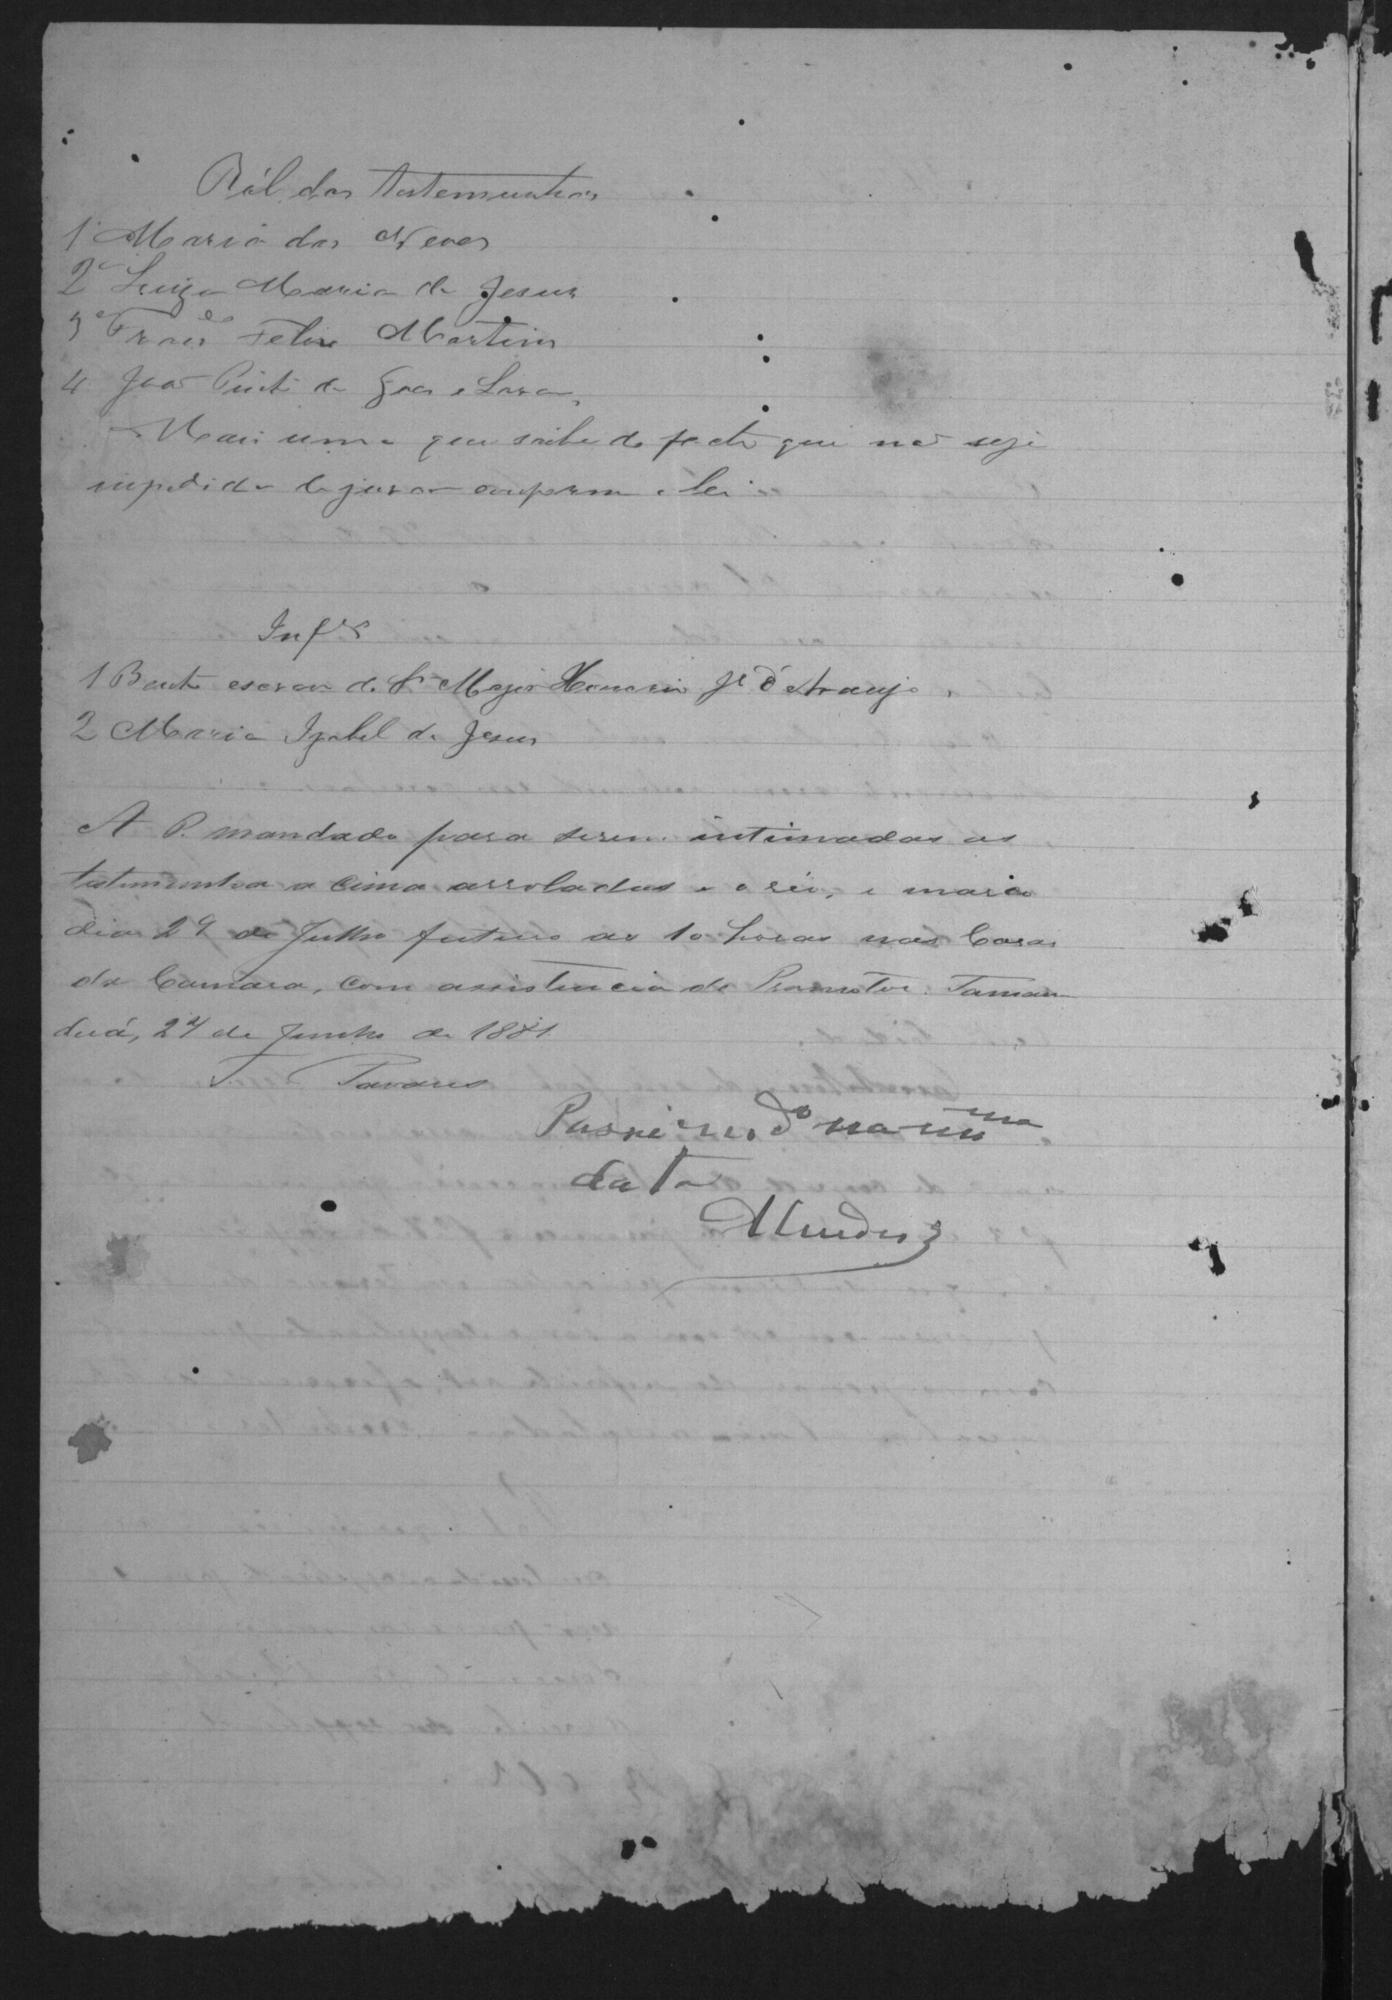 Ról das testemunhas
1ª Maria das Neves
2ª Luiza Maria de Jesus
3ª Franco Felix Martins
4 João Pinto de Goes e Lara
Mais uma que saiba do facto que não seja
impedida de jurar conforme a lei
Infes
1 Bento escravo do Sr Major Honorio Je d'Araujo
2 Maria Izabel de Jesus
A P. mandado para serem intimadas as
testemunhas a cima arroladas e o réo, e marco
dia 29 de Julho futuro as 10 horas nas Casas
da Camara, com assistencia do Promotor. Taman
duá, 27 de Junho de 1881
T. Tavares
Passei mdo na mma
data
Mendes